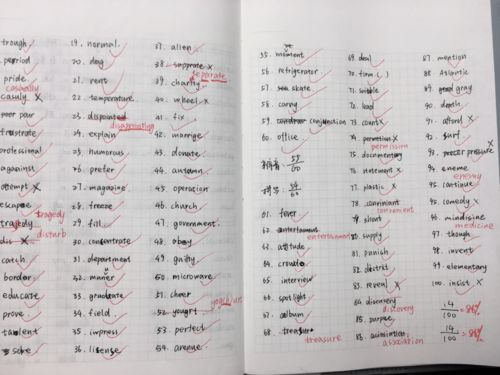 trough
period
pride
casually
casuly ×
poor pour
frustrate
professional
against
attempt ×
escape
tragedy
tragedy
dis ×
disturb
catch
border
educate
prove
talent
19. normal.
20. day
21. rent
22. temperature.
23. dispointed
disappointing
24. explain
25. humorous
26. prefer
27. magazine
28. freeze
29. fill
30. concentrate
31. department
32. miner
33. graduate
34. field.
35. impress
36. license
37. alien
38. sepprate ×
separate
39. charity
40. wheel ×
41. fix
42. marrige
43. donate.
44. autumn
45. operation
46. church
47. government.
48. obey
49. guilty
50. microwave.
51. cheer
yoghourt
52. yougrt
53. perfect
54. avenue.
55. moment
56. refrigerator
57. skate
58. carry
59. conjunction
60. office
61. fever
62. entertainment
entertainment
63. attitude
64. crowd
65. interview
66. spotlight
67. album
68. treasur
treasure
69. deal
70. firm ( )
71. suitable
72. load
73. count ×
74. permetion ×
permission
75. documentary
76. statement ×
77. plastic ×
78. conviniant
convenient
79. shout
80. supply
81. punish
82. district
83. reveal ×
84. discovery
discovery
85. purpose
86. association
87. mention
88. Atlantic
89. gray
90. death
91. afford ×
92. surf
93. pressure ×
94. eneme
enemy
95. continue
96. comedy ×
96. mindisine
medicine
97. though
98. invent
99. elementary
100. insist ×
14/100 = 86%
14/100 = 86%